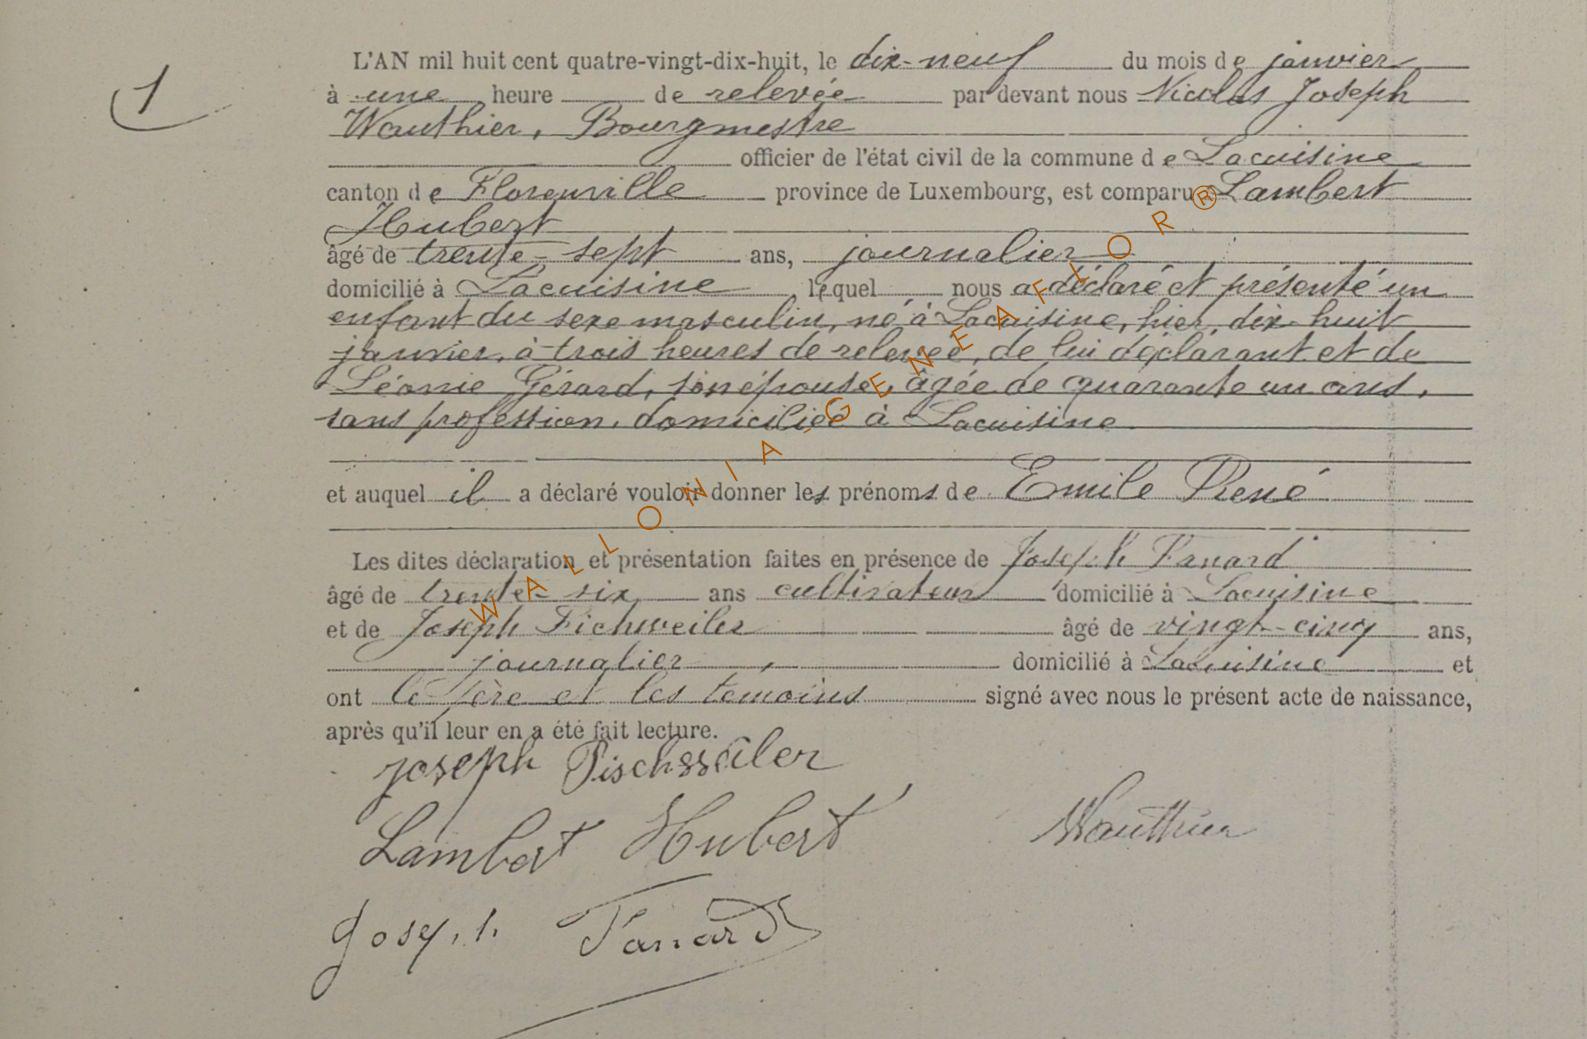 1
L'AN mil huit cent quatre-vingt-dix-huit, le dix-neuf du mois de janvier
à une heure de relevée par devant nous Nicolas Joseph
Wauthier, Bourgmestre
officier de l'état civil de la commune de Lacuisine
canton de Florenville province de Luxembourg, est comparu Lambert
Hubert
âgé de trente-sept ans, journalier
domicilié à Lacuisine, lequel nous a déclaré et présenté un
enfant du sexe masculin, né à Lacuisine, hier, dix-huit
janvier, à trois heures de relevée, de lui déclarant et de
Léonie Gérard, son épouse, âgée de quarante un ans,
sans profession, domiciliée à Lacuisine.
et auquel il a déclaré vouloir donner les prénoms de Emile René
Les dites déclaration et présentation faites en présence de Joseph Fanard
âgé de trente-six ans cultivateur domicilié à Lacuisine
et de Joseph Fichweiler âgé de vingt-cinq ans,
journalier, domicilié à Lacuisine et
ont le père et les témoins signé avec nous le présent acte de naissance,
après qu'il leur en a été fait lecture.
joseph
Lambert Hubert
Wauthier
Joseph Fanard
WALLONIA-GENEAFLOR®